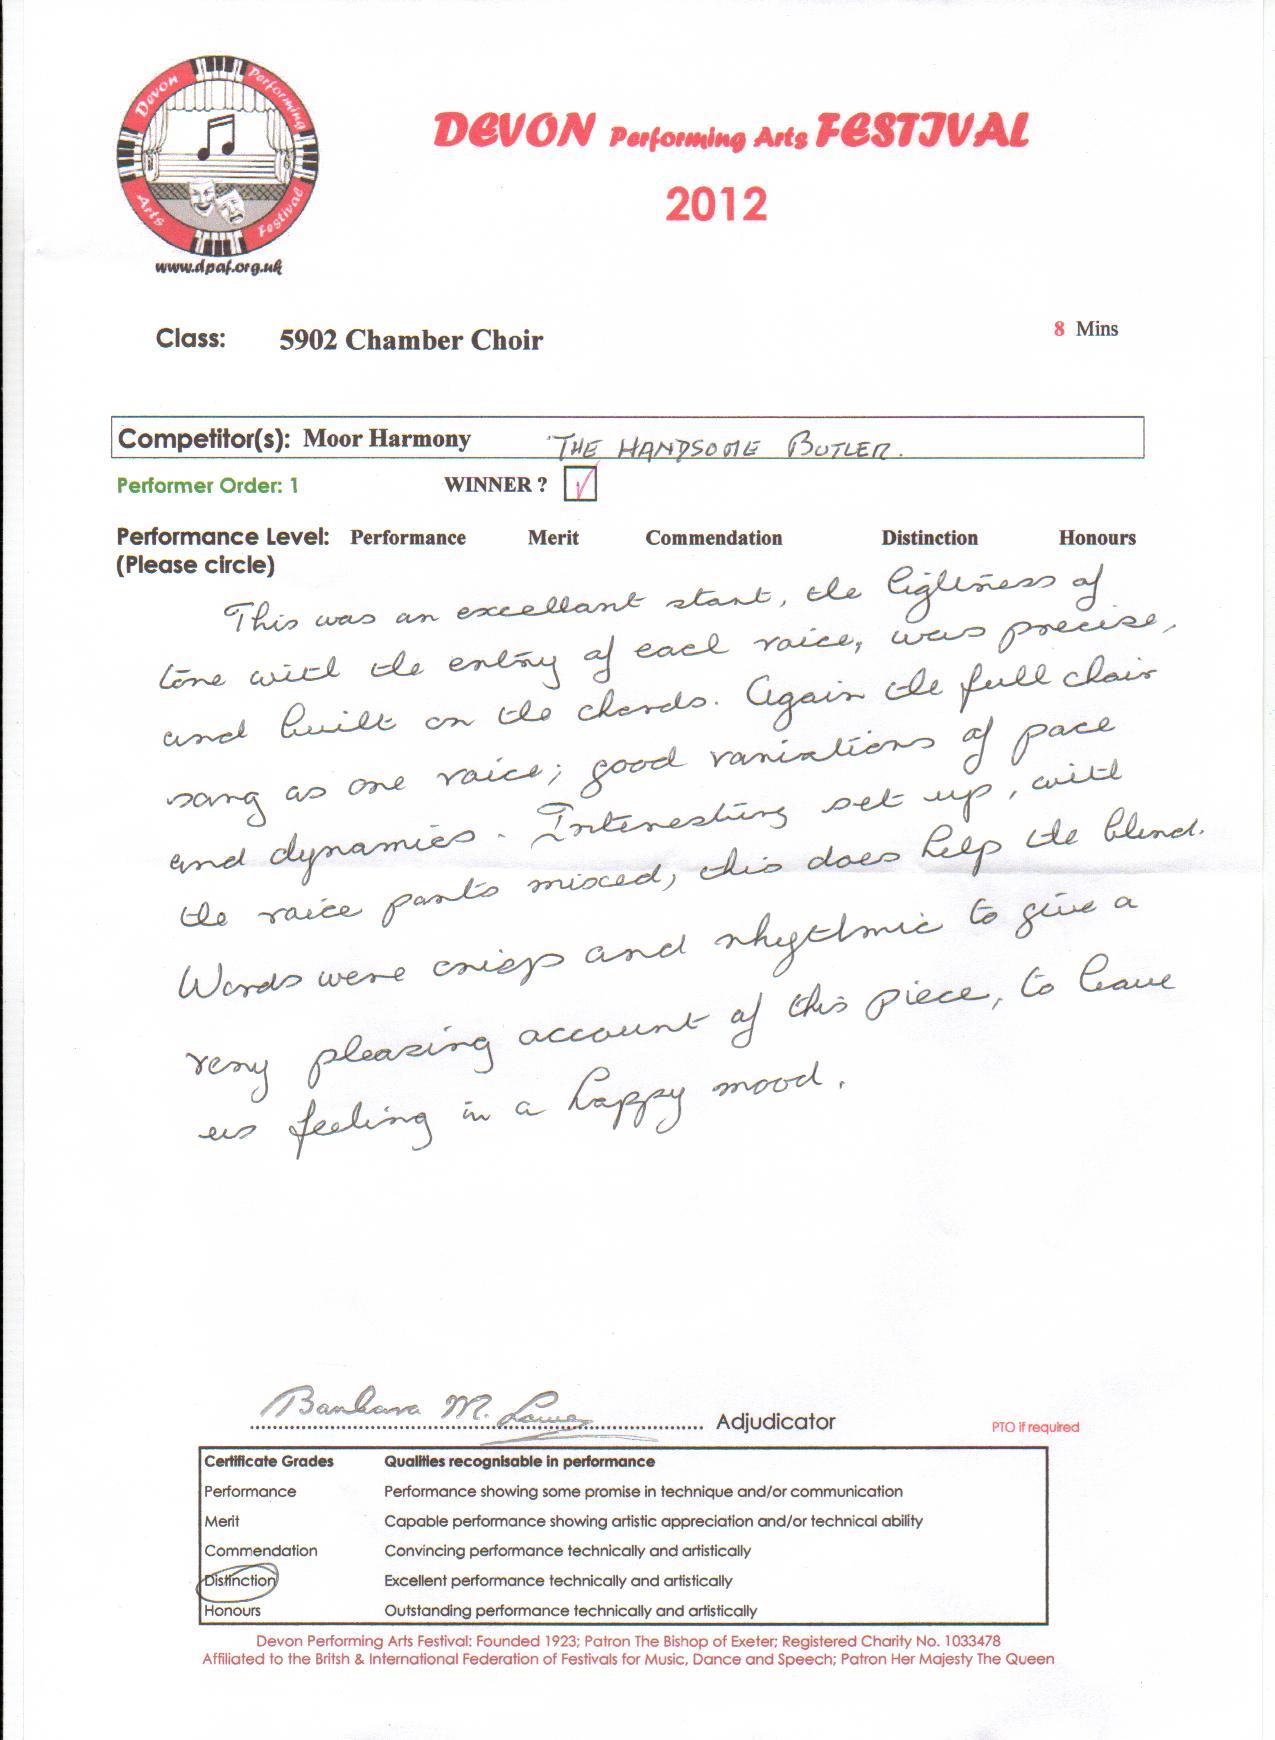 Devon Performing
Arts Festival
www.dpaf.org.uk
DEVON Performing Arts FESTIVAL
2012
Class: 5902 Chamber Choir 8 Mins
Competitor(s): Moor Harmony 'THE HANDSOME BUTLER.
Performer Order: 1 WINNER ? ✓
Performance Level: Performance Merit Commendation Distinction Honours
(Please circle)
This was an excellant start, the lightness of
tone with the entry of each voice, was precise,
and built on the chords. Again the full choir
sang as one voice; good variations of pace
and dynamics. Interesting set up, with
the voice parts mixed, this does help the blend.
Words were crisp and rhythmic to give a
very pleasing account of this piece, to leave
us feeling in a happy mood.
Barbara M. Lowe Adjudicator PTO if required
Certificate Grades Qualities recognisable in performance
Performance Performance showing some promise in technique and/or communication
Merit Capable performance showing artistic appreciation and/or technical ability
Commendation Convincing performance technically and artistically
Distinction Excellent performance technically and artistically
Honours Outstanding performance technically and artistically
Devon Performing Arts Festival: Founded 1923; Patron The Bishop of Exeter; Registered Charity No. 1033478
Affiliated to the Britsh & International Federation of Festivals for Music, Dance and Speech; Patron Her Majesty The Queen